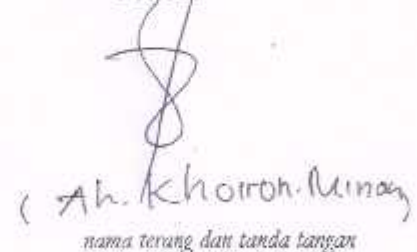 ( Ah. Khoiron. Minan)
nama terang dan tanda tangan